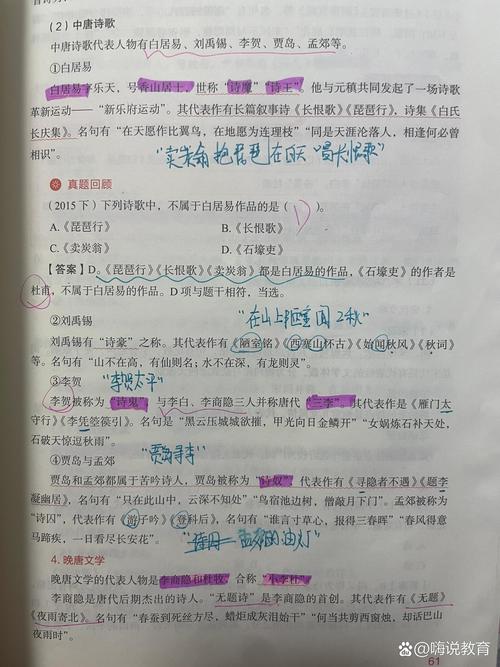 （2）中唐诗歌
中唐诗歌代表人物有白居易、刘禹锡、李贺、贾岛、孟郊等。
①白居易
白居易字乐天，号香山居士，世称“诗魔”“诗王”。他与元稹共同发起了一场诗歌
革新运动——“新乐府运动”。其代表作有长篇叙事诗《长恨歌》《琵琶行》，诗集《白氏
长庆集》。名句有“在天愿作比翼鸟，在地愿为连理枝”“同是天涯沦落人，相逢何必曾
相识”。
“卖炭翁抱琵琶在白天唱长恨歌”
真题回顾
（2015下）下列诗歌中，不属于白居易作品的是（D）。
A.《琵琶行》 B.《长恨歌》
C.《卖炭翁》 D.《石壕吏》
【答案】D。《琵琶行》《长恨歌》《卖炭翁》都是白居易的作品，《石壕吏》的作者是
杜甫，不属于白居易的作品。D项与题干相符，当选。
“在山上陋室闻2秋”
②刘禹锡
刘禹锡有“诗豪”之称。其代表作有《陋室铭》《西塞山怀古》《始闻秋风》《秋词》
等。名句有“山不在高，有仙则名；水不在深，有龙则灵”。
③李贺 “李贺太平”
李贺被称为“诗鬼”，与李白、李商隐三人并称唐代“三李”。其代表作是《雁门太
守行》《李凭箜篌引》。名句有“黑云压城城欲摧，甲光向日金鳞开”“女娲炼石补天处，
石破天惊逗秋雨”。
④贾岛与孟郊 “贾岛寻李”
贾岛和孟郊都属于苦吟诗人，贾岛被称为“诗奴”，代表作有《寻隐者不遇》《题李
凝幽居》，名句有“只在此山中，云深不知处”“鸟宿池边树，僧敲月下门”。孟郊被称为
“诗囚”，代表作有《游子吟》《登科后》，名句有“谁言寸草心，报得三春晖”“春风得意
马蹄疾，一日看尽长安花”。
孟郊的油灯”
4. 晚唐文学
晚唐文学的代表人物是李商隐和杜牧，合称“小李杜”。
李商隐是唐代后期杰出的诗人。“无题诗”是李商隐的首创。其代表作有《无题》
《夜雨寄北》。名句有“春蚕到死丝方尽，蜡炬成灰泪始干”“何当共剪西窗烛，却话巴山
夜雨时”。
61
@嗨说教育